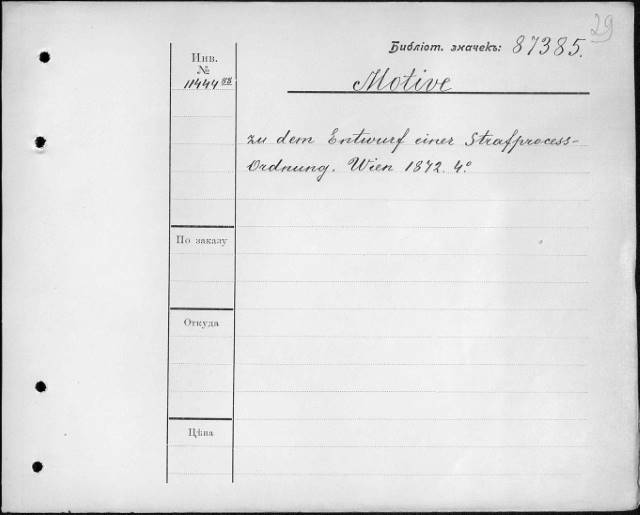 29
Библіот. значекъ: 87385.
Инв.
№
11444
Motive
zu dem Entwurf einer Strafprocess-
Ordnung. Wien 1872. 4º
По заказу
Откуда
Цѣна